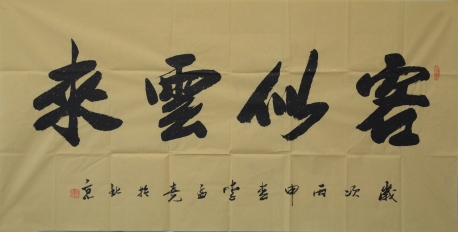 客似雲來
歲次丙申春李

於北京